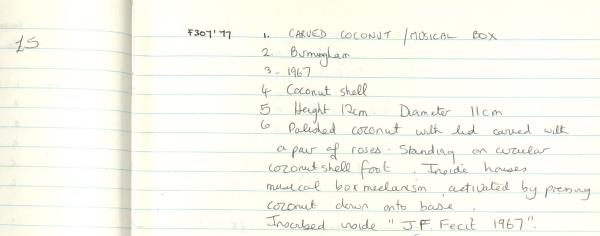 F307'77 1. CARVED COCONUT / MUSICAL BOX
15 2. Birmingham
3 - 1967
4 Coconut shell
5 Height 12cm. Diameter 11cm
6 Polished coconut with lid carved with
a pair of roses. Standing on circular
coconut shell foot. Inside houses
musical box mechanism, activated by pressing
coconut down onto base.
Inscribed inside "J.F. Fecit 1967".